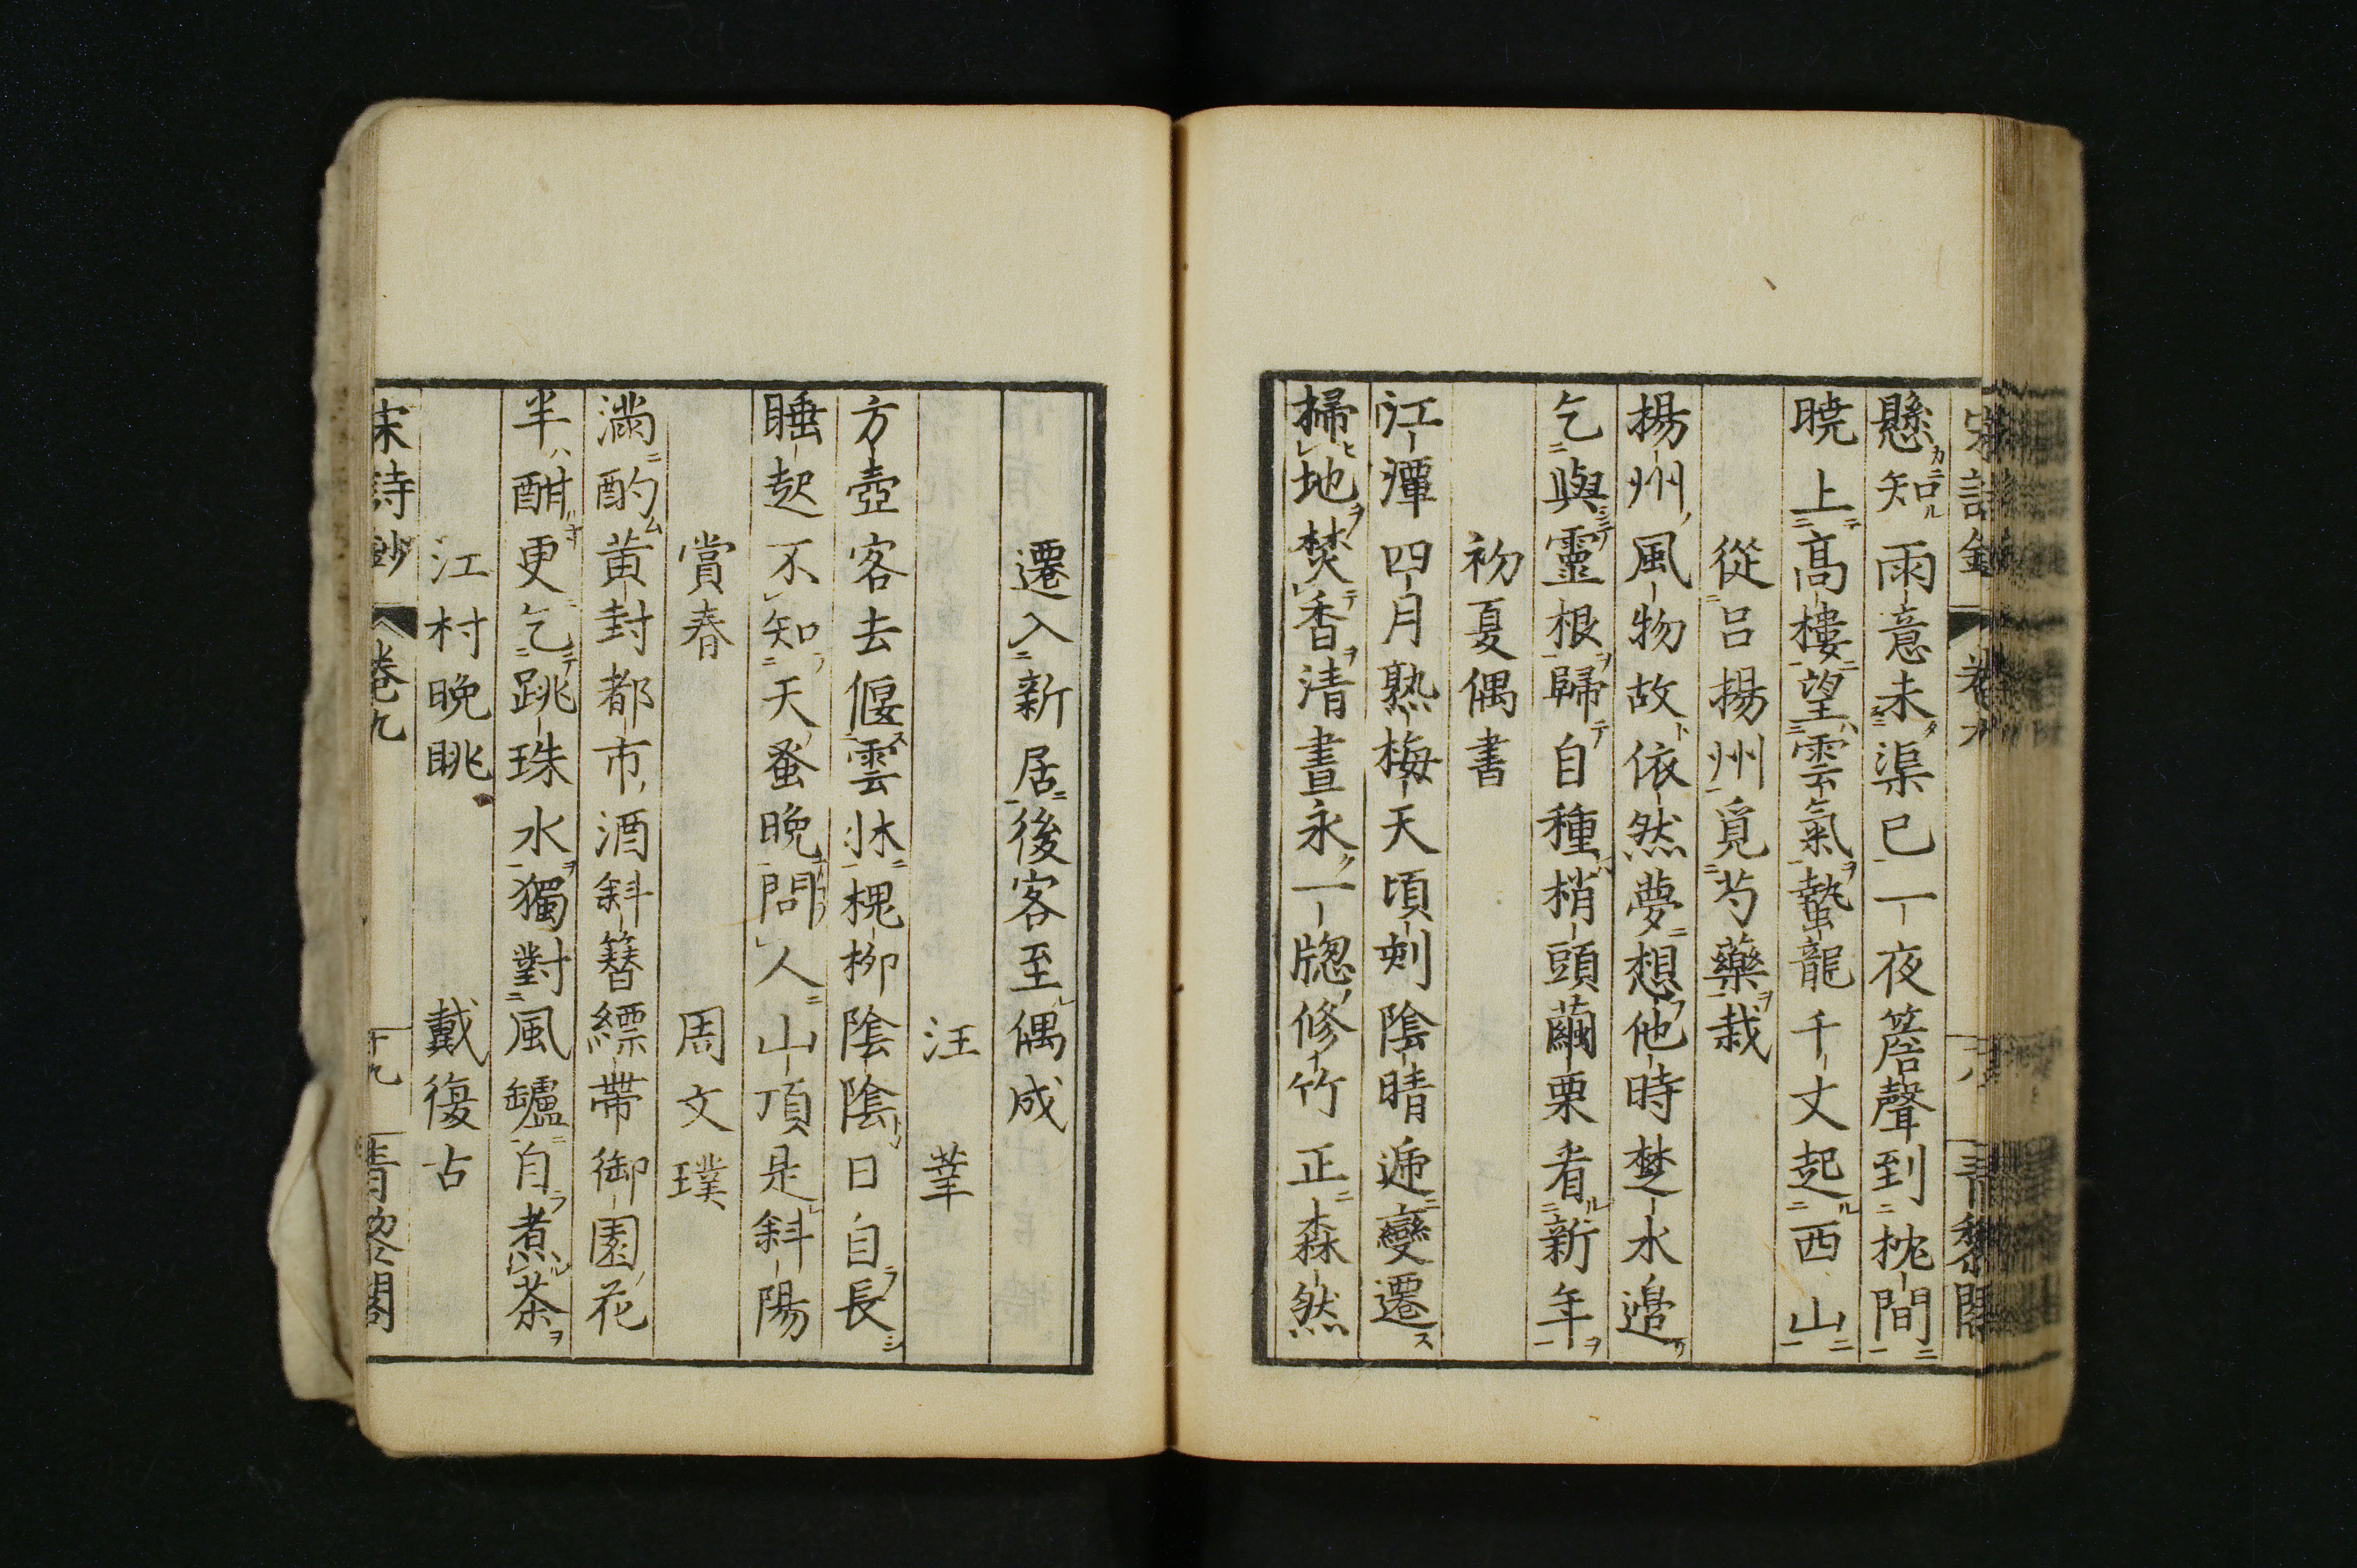 懸知雨意未渠已一夜簷聲到枕間
曉上高樓望雲氣蟄龍千丈起西山
從呂揚州覓芍藥栽
揚州風物故依然夢想他時楚水邉
乞與靈根歸自種梢頭繭栗看新年
初夏偶書
江潭四月熟梅天頃刻陰晴遞變遷
掃地焚香清晝永一牕修竹正森然
遷入新居後客至偶成
汪莘
方壺客去偃雲牀槐柳陰陰日自長
睡起不知天蚤晩問人山頂是斜陽
賞春
周文璞
滿酌黄封都市酒斜簪縹帶御園花
半酣更乞跳珠水獨對風罏自煮茶
江村晩眺
戴復古
宋詩鈔 卷九 十九 青黎閣